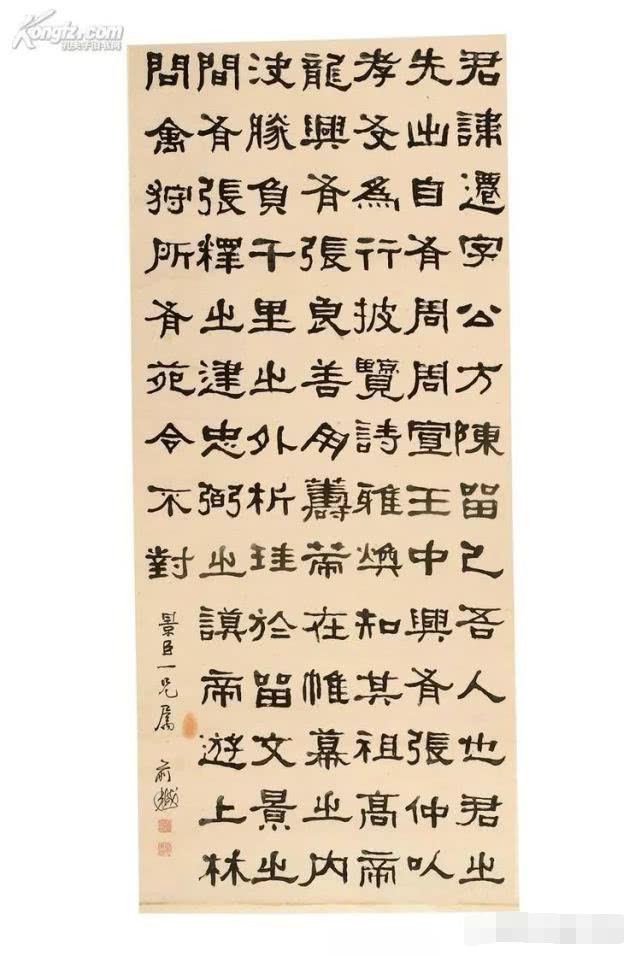 Kongfz.com
孔夫子旧书网
君諱遷字公方陳留己吾人也君之
先出自有周周宣王中興有張仲以
孝友爲行披覽詩雅煥知其祖高帝
龍興有張良善用籌策在帷幕之内
決勝負千里之外析珪於留文景之
間有張釋之建忠弼之謨帝遊上林
問禽狩所有苑令不對
景臣一兄屬 俞樾